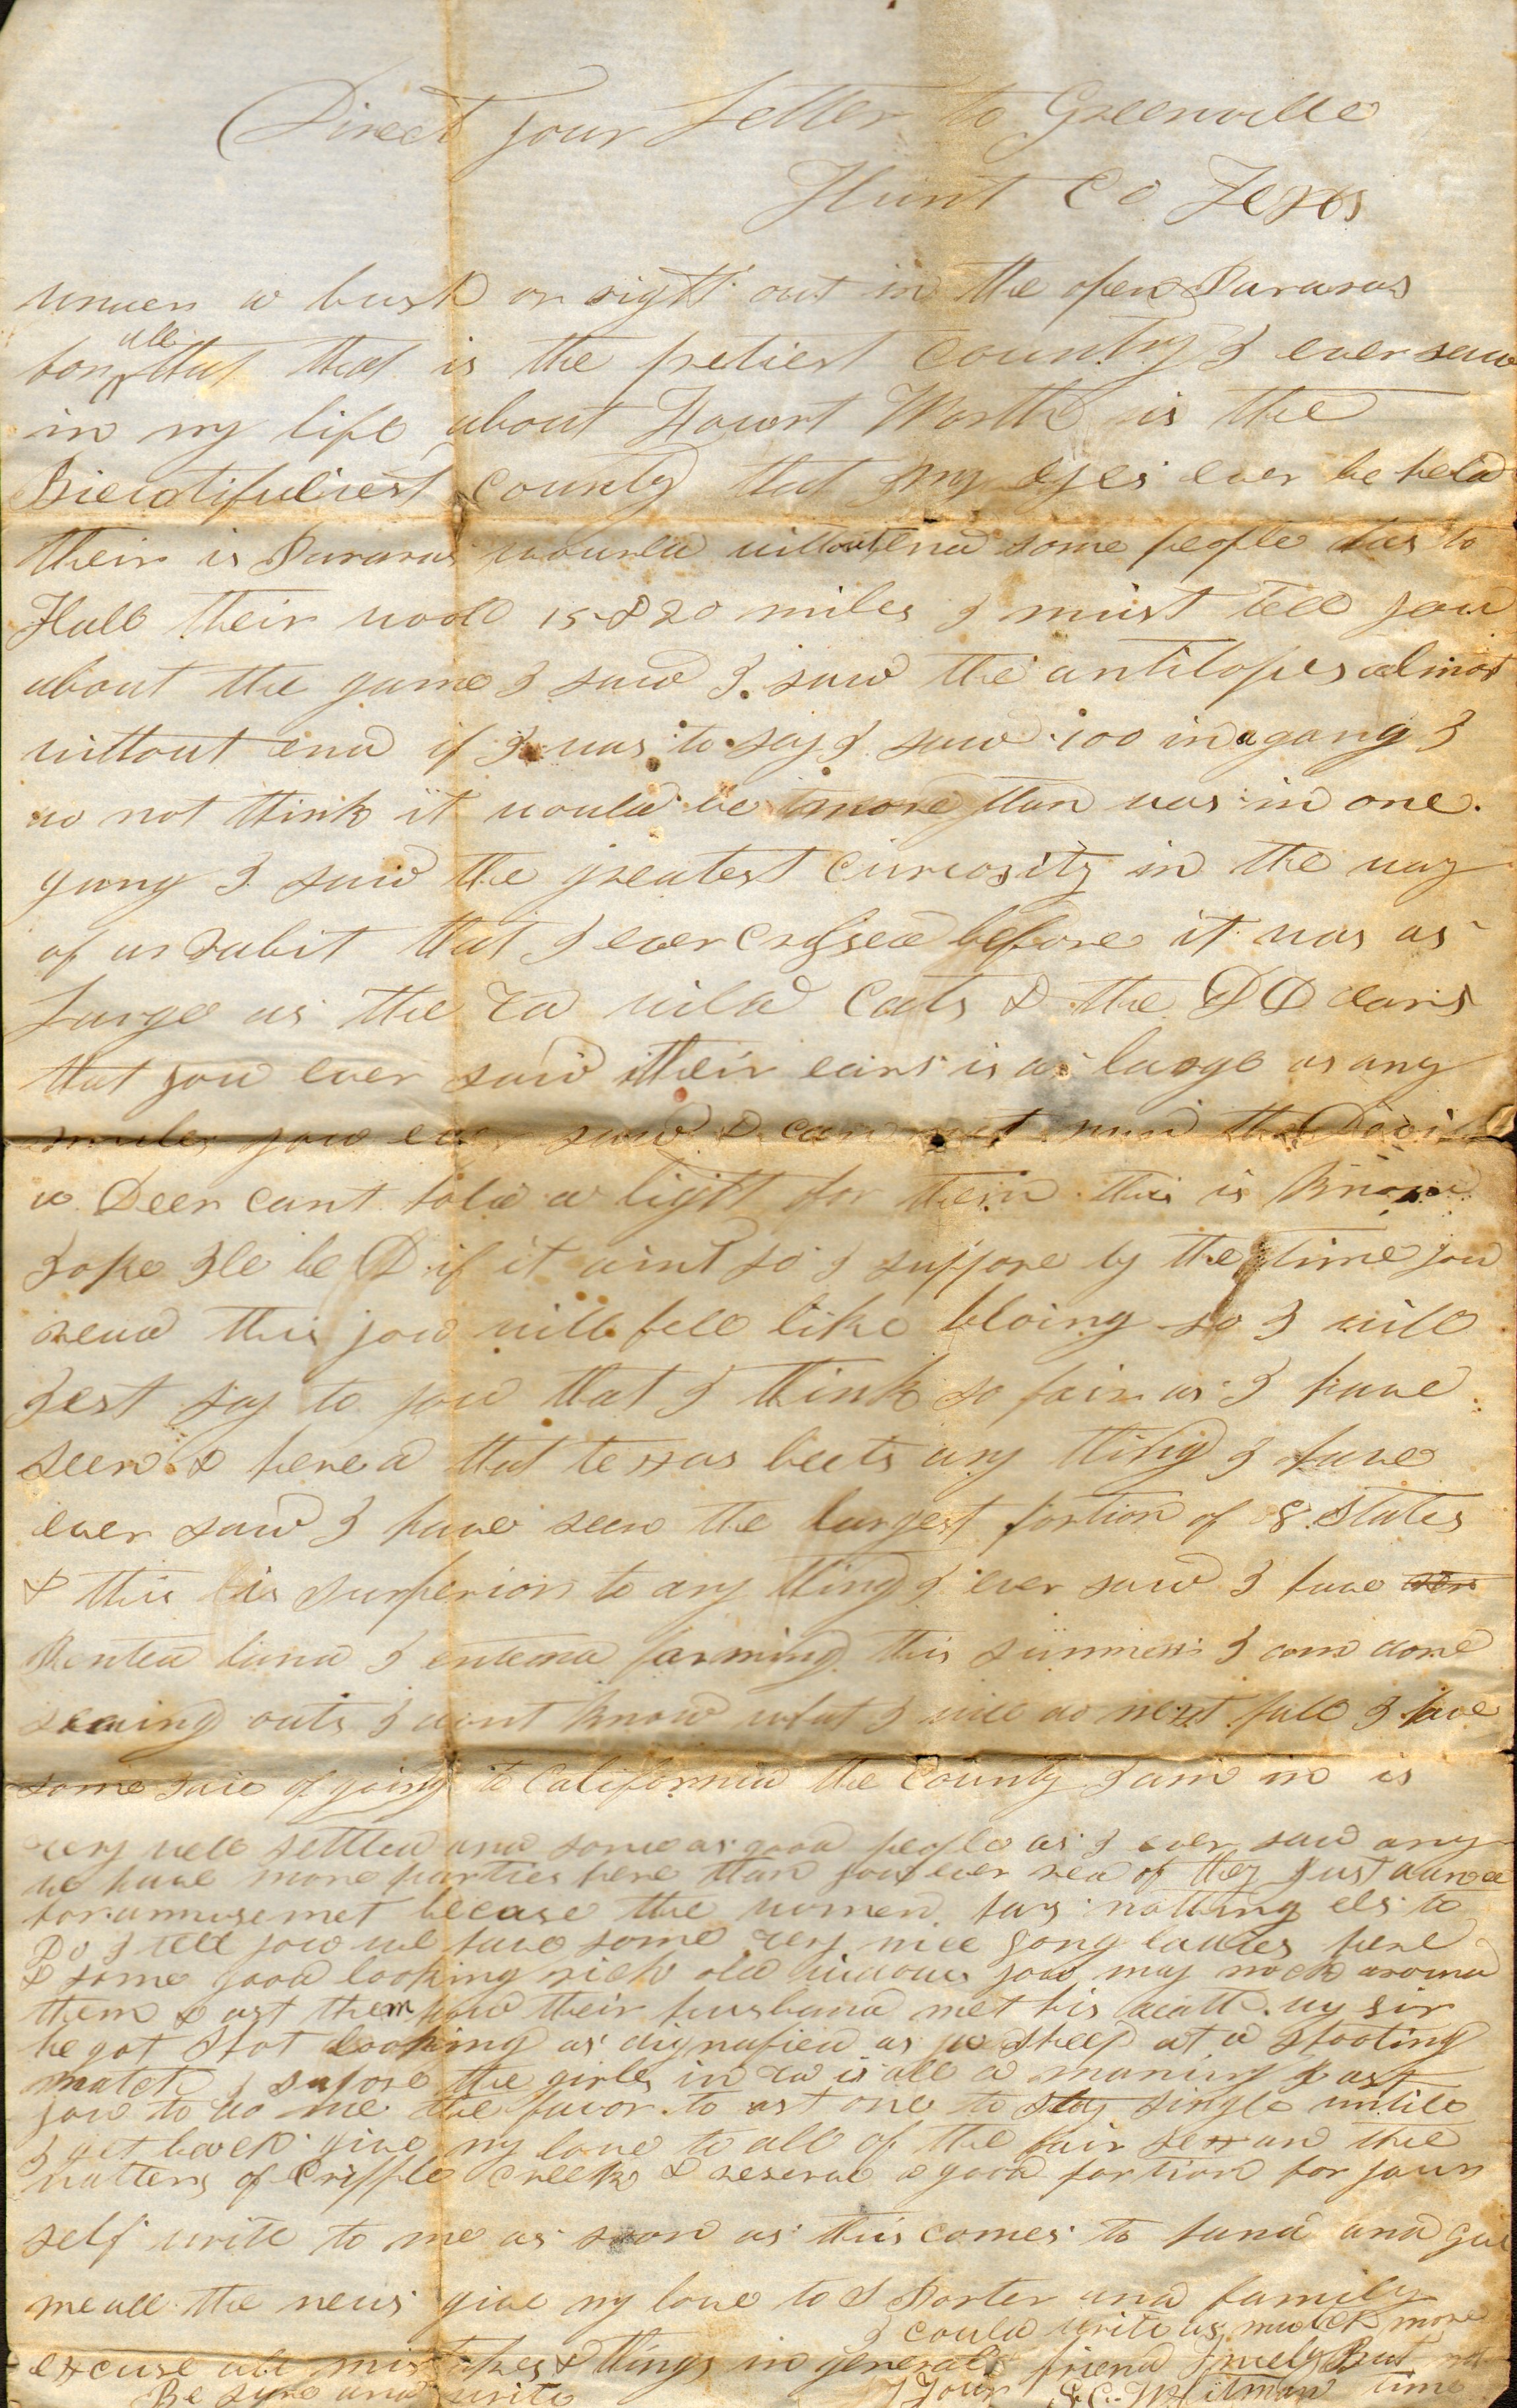 Direct your Letter to Greenville
Hunt Co Texas
under a bush or right out in the open Pararas
for all that that is the pretiest country I ever saw
in my life about Fourt Worth is the
Bieutifuliest county that my eyes ever be held
their is Pararas world without end some people has to
Hall their wood 15 & 20 miles I must tell you
about the game I saw I saw the antilopes almost
without end if I was to say I saw 100 in a gang I
do not think it would be more than was in one
gang I saw the greatest curiosity in the way
of a Rabit that I ever before it was as
Large as the Va wild Cats & the D D ears
that you ever saw their ears is as large as any
mules you ever saw & can out run the Devil
a Deer cant hold a light for them this is
I hope Ile be D if it aint so I suppose by the time you
read this you will fell like bloing so I will
Jest say to you that I think so fair as I have
seen & hered that texas beets any thing I have
ever saw I have seen the largest portion of 8 States
& this is superior to any thing I ever saw I have
Rented land I entend farming this summer I am done
sewing outs I dont know what I will do next fall I have
some idie of going to California the County I am in is
very well settled and some as good people as I ever saw any
we have more parties here than you ever red of they just dance
for amusemet because the women has nothing els to
Do I tell you we have some very nice yong ladies here
& some good looking rich old widows you may around
them & ast them how their husband met his death. wy sir
he got shot looking as dignafied as a sheep at a shooting
match I supose the girls in Va is all a marring I ast
you to do me the favor to ast one to stay single untill
I get back give my love to all of the fair sex on the
watters of Cripple Creek & reserve a good portion for your
self write to me as soon as this comes to hand and give
me all the news give my love to S Porter and family
I could write as much more
excuse all mistakes & things in general friend Truely But not
Be sure and write Your S. C. Whitman time